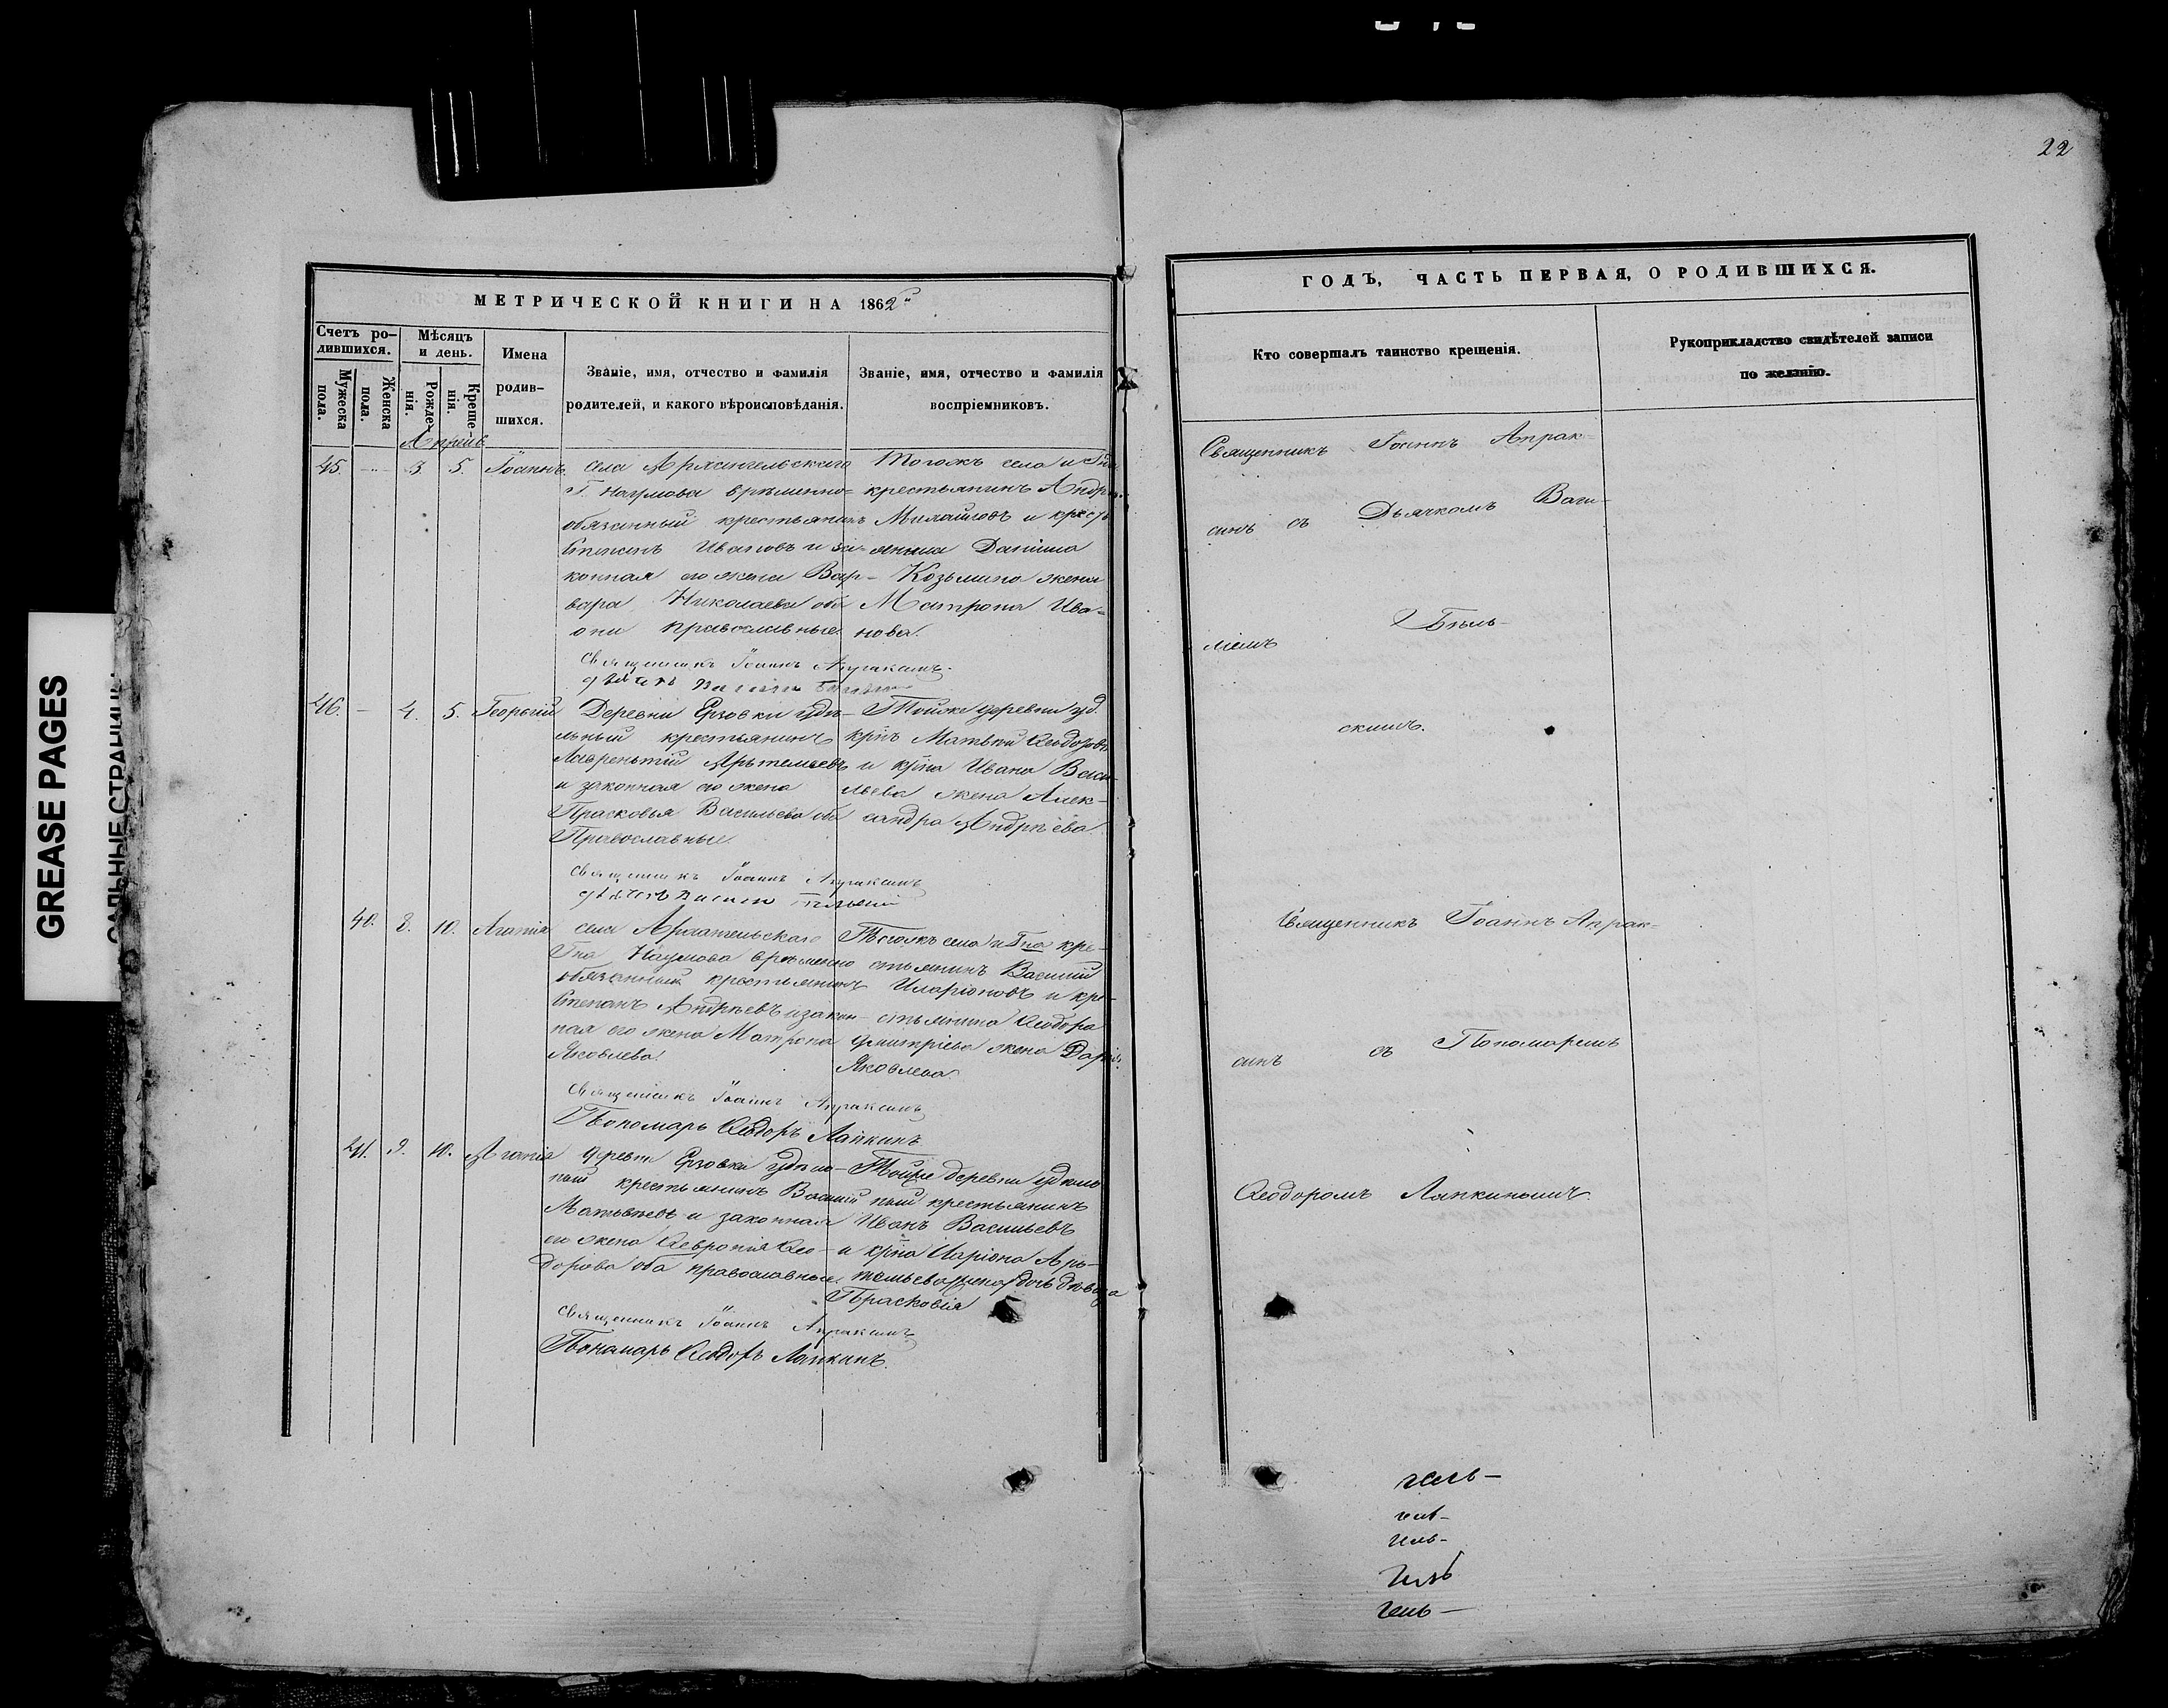 22
МЕТРИЧЕСКОЙ КНИГИ НА 1862
ГОДЪ, ЧАСТЬ ПЕРВАЯ, О РОДИВШИХСЯ.
Счетъ ро-
дившихся.
Мужеска
пола.
Женска
пола.
Мѣсяцъ
и день.
Рожде-
нія.
Креще-
нія.
Имена
родив-
шихся.
Званіе, имя, отчество и фамилія
родителей, и какого вѣроисповѣданія.
Званіе, имя, отчество и фамилія
воспріемниковъ.
Кто совершалъ таинство крещенія.
Рукоприкладство свидѣтелей записи
по желанію.
45. 3 5. Іоаннъ.
села Архангельскаго
Г. Наумова временно-
обязанный крестьянинъ
Степанъ Ивановъ и за-
конная его жена Вар-
вара Николаева оба
они православные.
Тогожъ села и
крестьянинъ
Михайловъ и
Козьмина жена
Матрона Ива-
нова.
Священникъ Іоаннъ Апраксинъ.
Священникъ Іоаннъ Апрак-
синъ съ Дьячкомъ Васи-
ліемъ Бѣль-
скимъ.
46. - 4. 5. Георгій
Деревни Ерзовки удѣ-
льный крестьянинъ
Лаврентій Артемьевъ
и законная его жена
Прасковья Васильева оба
Православные.
Тойже деревни уд.
крнъ Матвѣй Ѳеодоровъ
и крна Ивана Васи-
льева жена Алек-
сандра Андрѣева.
Священникъ Іоаннъ Апраксинъ
40. 8. 10. Агапія
села Архангельскаго
Гна Наумова временно
обязанный крестьянинъ
Степанъ Андреевъ и закон-
ная его жена Матрона
Яковлева.
Тогожъ села и Гна кре-
стьянинъ Василій
Иларіоновъ и кре-
стьянина Ѳеодора
Димитріева жена Дарья
Яковлева.
Священникъ Іоаннъ Апраксинъ
Пономарь Ѳеодоръ Лапкинъ.
Священникъ Іоаннъ Апрак-
синъ съ Пономаремъ
Ѳеодоромъ Лапкинымъ.
41. 9. 10. Агапія
Ерзовки удѣль-
ный крестьянинъ Василій
Матвѣевъ и законная
его жена Ѳевронія Ѳео-
дорова оба православные.
Тойже деревни удѣль
ный крестьянинъ
Иванъ Васильевъ
и крна Иларіона Ар-
темьева дочь дѣвица
Прасковія
Священникъ Іоаннъ Апраксинъ
Пономарь Ѳеодоръ Лапкинъ.
GREASE PAGES